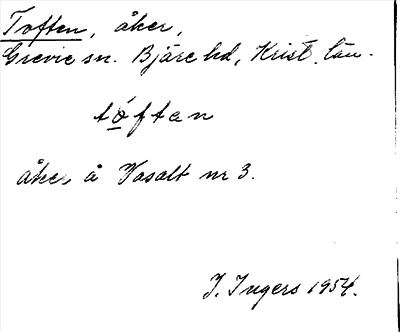 Toften, åker,
Grevie sn. Bjäre hd, Krist. län.
tóften
åker å Vasalt nr 3.
I. Ingers 1954.